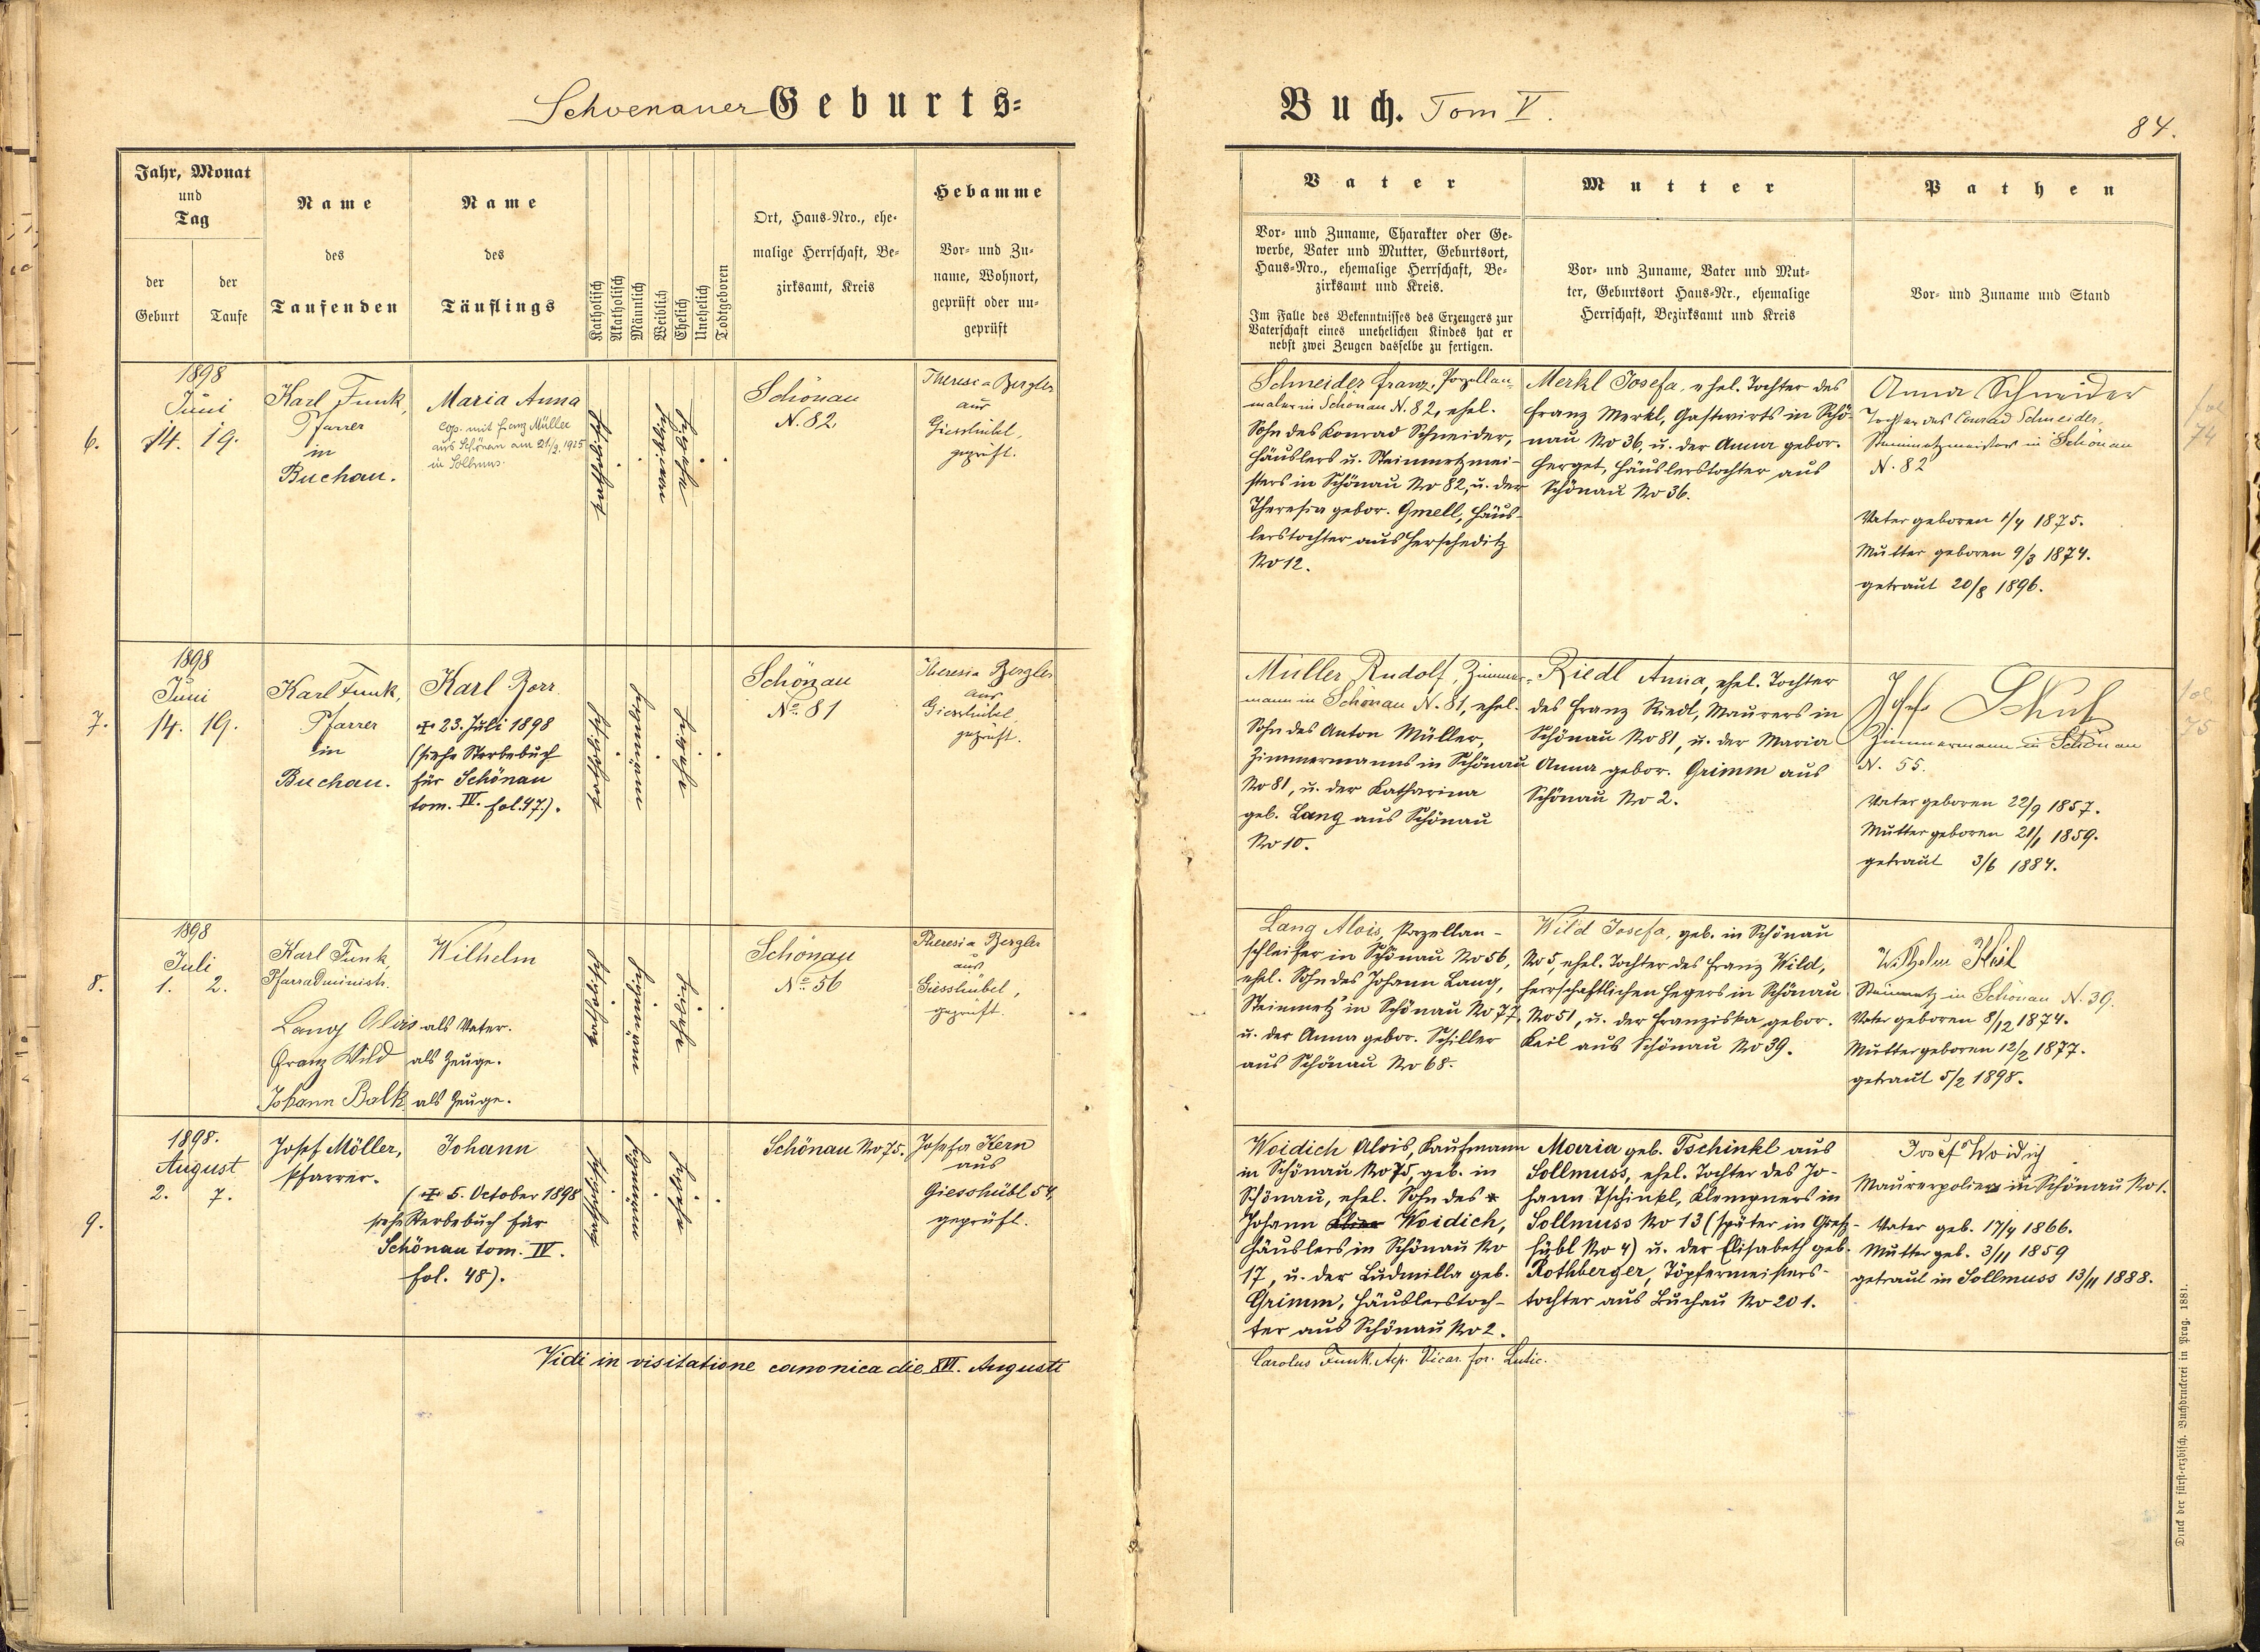 Schoenauer Geburts-
Buch. Tom V.
84.
Jahr, Monat
und
Tag
der
Geburt
der
Taufe
Name
des
Taufenden
Name
des
Täuflings
Katholisch
Akatholisch
Männlich
Weiblich
Ehelich
Unehelich
Todtgeboren
Ort, Haus-Nro., ehe-
malige Herrschaft, Be-
zirksamt, Kreis
Hebamme
Vor- und Zu-
name, Wohnort,
geprüft oder un-
geprüft
Vater
Vor- und Zuname, Charakter oder Ge-
werbe, Vater und Mutter, Geburtsort,
Haus-Nro., ehemalige Herrschaft, Be-
zirksamt und Kreis.
Im Falle des Bekenntnisses des Erzeugers zur
Vaterschaft eines unehelichen Kindes hat er
nebst zwei Zeugen dasselbe zu fertigen.
Mutter
Vor- und Zuname, Vater und Mut-
ter, Geburtsort Haus-Nr., ehemalige
Herrschaft, Bezirksamt und Kreis
Pathen
Vor- und Zuname und Stand
6.
1898
Juni
14. 19.
Karl Funk,
Pfarrer
in
Buchau.
Maria Anna
cop. mit Franz Müller
aus Schönau am 21/2. 1925
in Sollmus.
katholisch
weiblich
ehelich
Schönau
N. 82.
Theresia Bergler
aus
Giesshübel,
geprüft.
Schneider Franz, Porzellan-
maler in Schönau N. 82, ehel.
Sohn des Konrad Schneider,
Häuslers u. Steinmetzmei-
sters in Schönau No 82, u. der
Theresia gebor. Gmell, Häus-
lerstochter aus Herscheditz
No 12.
Merkl Josefa, ehel. Tochter des
Franz Merkl, Gastwirts in Schö-
nau No 36, u. der Anna gebor.
Herget, Häuslerstochter aus
Schönau No 36.
Anna Schneider
Tochter des Conrad Schneider,
Steinmetzmeister in Schönau
N. 82
Vater geboren 1/4 1875.
Mutter geboren 9/3 1874.
getraut 20/8 1896.
fol
74
7.
1898
Juni
14. 19.
Karl Funk,
Pfarrer
in
Buchau.
Karl Borr.
23. Juli 1898
(siehe Sterbebuch
für Schönau
tom. IV. fol. 47.).
katholisch
männlich
ehelich
Schönau
No 81
Theresia Bergler
aus
Giesshübel,
geprüft.
Müller Rudolf, Zimmer-
mann in Schönau N. 81, ehel.
Sohn des Anton Müller,
Zimmermanns in Schönau
No 81, u. der Katharina
geb. Lang aus Schönau
No 10.
Riedl Anna, ehel. Tochter
des Franz Riedl, Maurers in
Schönau No 81, u. der Maria
Anna gebor. Grimm aus
Schönau No 2.
Zimmermann in Schönau
N. 55.
Vater geboren 22/9 1857.
Mutter geboren 21/1 1859.
getraut 3/6 1884.
fol
75
8.
1898
Juli
1. 2.
Karl Funk
Pfarradministr.
Wilhelm
Lang Alois als Vater.
Franz Wild als Zeuge.
Johann Balk als Zeuge.
katholisch
männlich
ehelich
Schönau
No 56
Theresia Bergler
aus
Giesshübel,
geprüft.
Lang Alois, Porzellan-
schleifer in Schönau No 56,
ehel. Sohn des Johann Lang,
Steinmetz in Schönau No 77,
u. der Anna gebor. Schiller
aus Schönau No 68.
Wild Josefa, geb. in Schönau
No 5, ehel. Tochter des Franz Wild,
herrschaftlichen Hegers in Schönau
No 51, u. der Franziska gebor.
Keil aus Schönau No 39.
Wilhelm Keil
Steinmetz in Schönau N. 39.
Vater geboren 8/12 1874.
Mutter geboren 12/2 1877.
getraut 5/2 1898.
9.
1898.
August
2. 7.
Josef Möller,
Pfarrer.
Johann
( 5. October 1898
siehe Sterbebuch für
Schönau tom. IV.
fol. 48).
katholisch
männlich
ehelich
Schönau No 75.
Josefa Kern
aus
Giesshübl 54,
geprüft.
Woidich Alois, Kaufmann
in Schönau No 75, geb. in
Schönau, ehel. Sohn des
Johann Woidich,
Häuslers in Schönau No
17, u. der Ludmilla geb.
Grimm, Häuslerstoch-
ter aus Schönau No 2.
Maria geb. Tschinkl aus
Sollmuss, ehel. Tochter des Jo-
hann Tschinkl, Klempners in
Sollmuss No 13 (später in Gieß-
hübl No 4) u. der Elisabeth geb.
Rothberger, Töpfermeisters-
tochter aus Buchau No 201.
Josef Woidich
Maurerpolier in Schönau No 1.
Vater geb. 17/4 1866.
Mutter geb. 3/11 1859
getraut in Sollmuss 13/11 1888.
Vidi in visitatione canonica die XVI. Augusti
Carolus Funk. Vicar. for. Lutic.
Druck der fürst-erzbisch. Buchdruckerei in Prag. 1881.